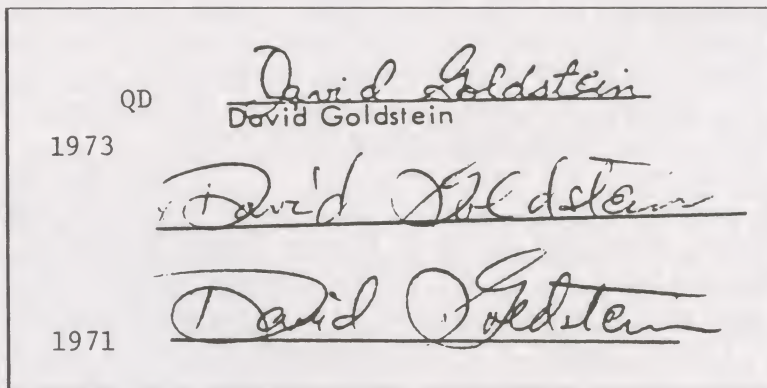 QD David Goldstein
David Goldstein
1973
David Goldstein
David Goldstein
1971